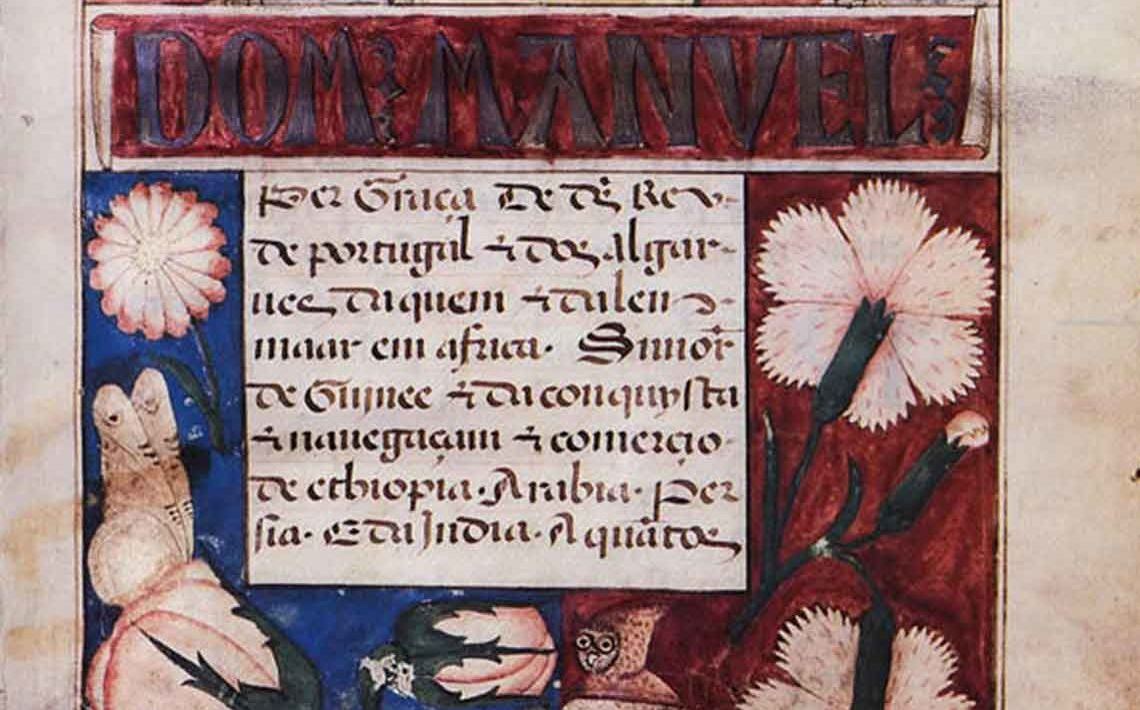 DOM MANVEL
Per Graça de d̃s Rey
de portugal ⁊ dos algar-
ues daquem ⁊ dalem
maar em africa. Sennor
de Guinee ⁊ da conquysta
⁊ nauegaçam ⁊ comercio
de ethiopia. Arabia. Per
sia. E da India. A quãtos